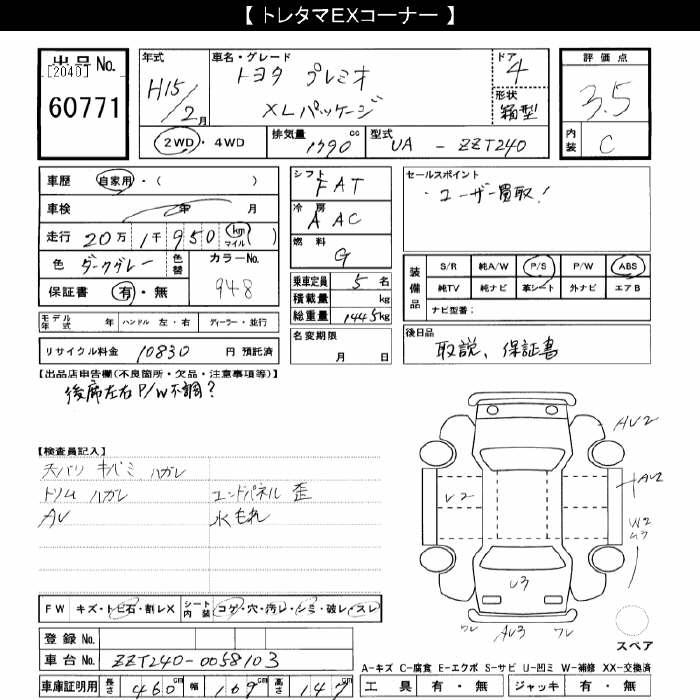 【 トレタマEXコーナー 】
出品No.
[2040]
60771
年式
H15/2月
車名・グレード
トヨタ プレミオ
XLパッケージ
ドア
4
形状
箱型
評価点
3.5
内装
C
2WD・4WD
排気量 1790 cc
型式 UA - ZZT240
車歴 自家用・( )
車検 年 月
走行 20万1千950 km マイル ( )
色 ダークグレー 色替 カラーNo.
948
保証書 有・無
シフト
FAT
冷房
AAC
燃料
G
乗車定員 5名
積載量 kg
総重量 1445kg
セールスポイント
・ユーザー買取!
装備品
S/R 純A/W P/S P/W ABS
純TV 純ナビ 革シート 外ナビ エアB
ナビ型番:
モデル年式 年 ハンドル 左・右 ディーラー・並行
名変期限
月 日
後日品
取説、保証書
リサイクル料金 10830 円 預託済
【出品店申告欄(不良箇所・欠品・注意事項等)】
後席左右P/W不調?
【検査員記入】
天バリ キバミ ハガレ
トリム ハガレ エンドパネル 歪
AU 水もれ
AU2
AU2
U2
W2
U3
U3
AU3
FW キズ・トビ石・割レX シート内装 コゲ・穴・汚レ・シミ・破レ・スレ
スペア
登録No.
車台No. ZZT240-0058103
A-キズ C-腐食 E-エクボ S-サビ U-凹ミ W-補修 XX-交換済
車庫証明用 長さ 460cm 幅 169cm 高さ 147cm
工具 有・無 ジャッキ 有・無